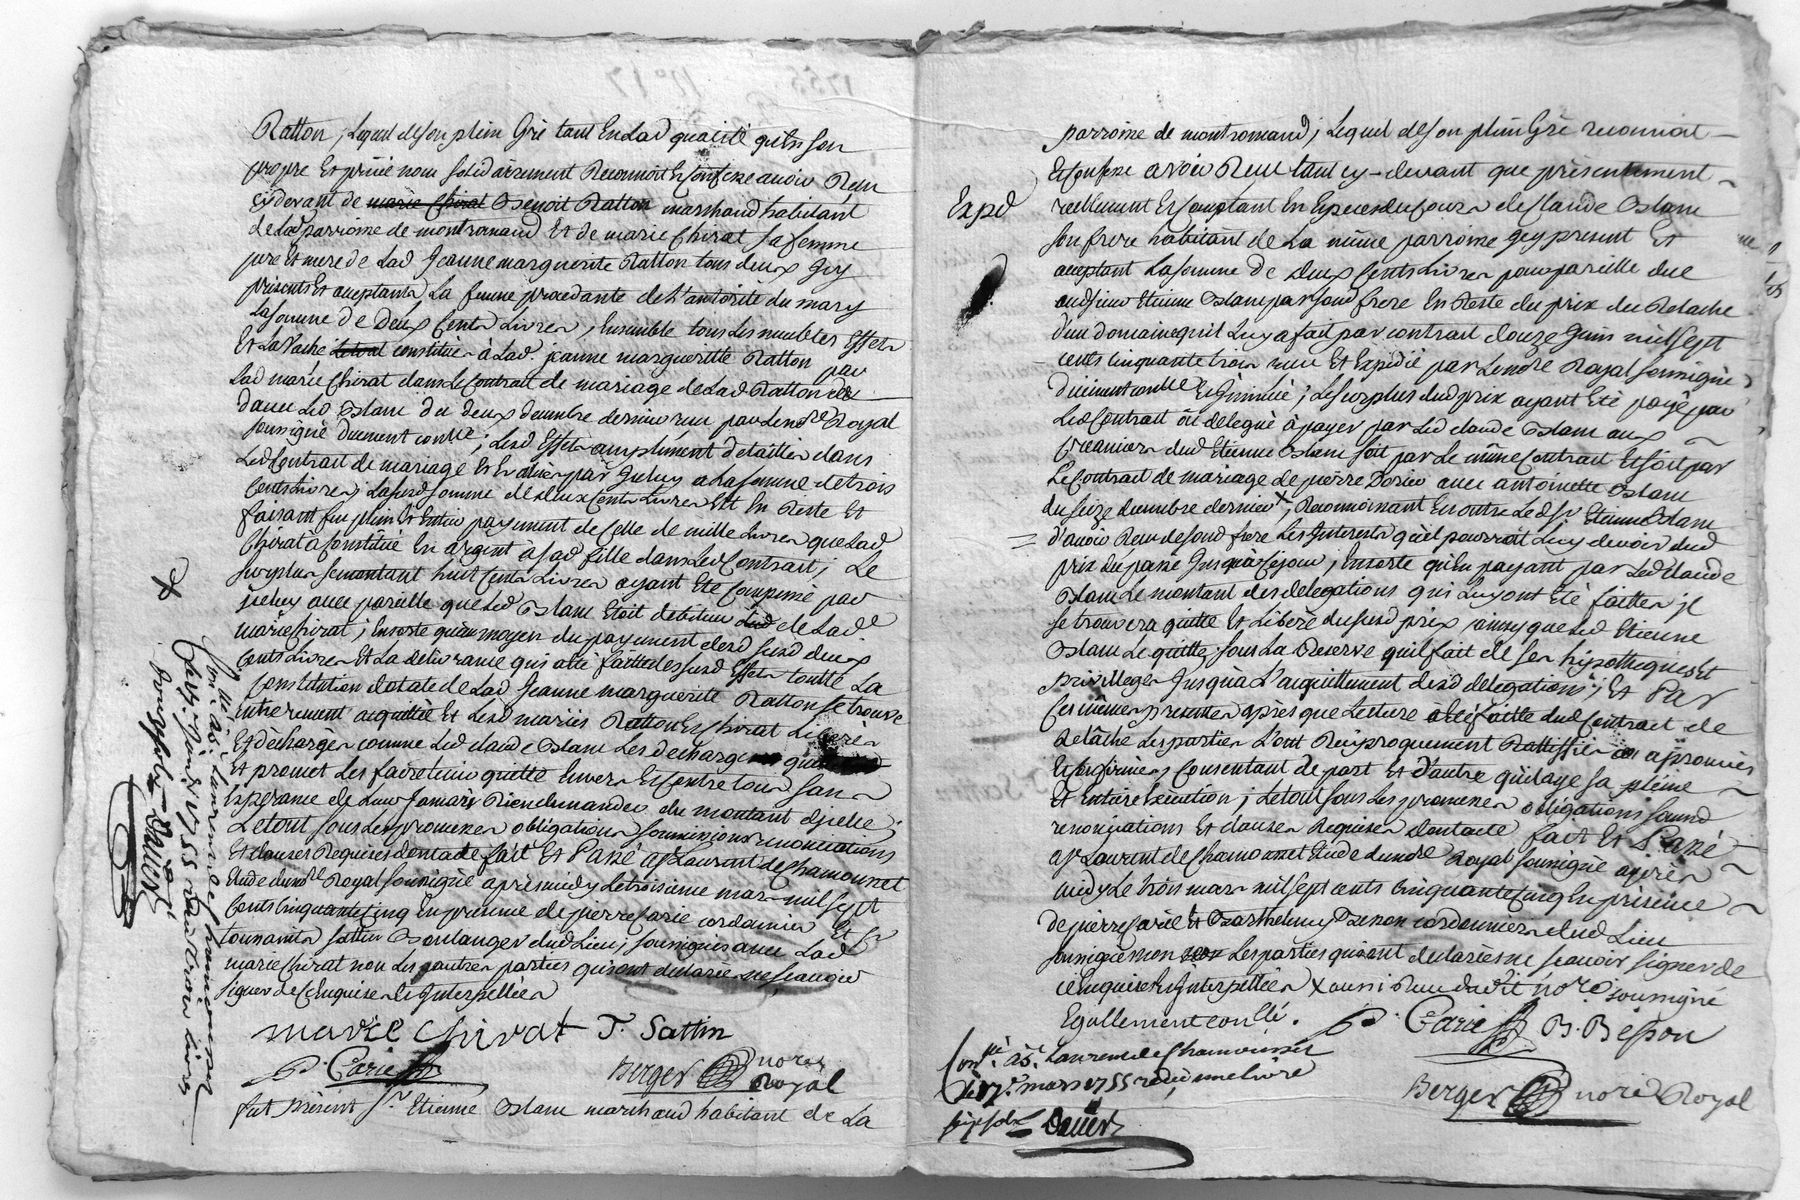 Ratton, Lequel de son plein Gré tant En Lad qualité qu'En Son
propre Et privé nom Solidairement Reconnoit Et Confesse avoir Reçu
cy devant de marie Chirat Benoit Ratton marchand habitant
de Lad parroisse de montromand Et de marie Chirat Sa femme
pere Et mere de Lad Jeanne marguerite Ratton tous deux Icy
présents Et acceptants La femme procedante de L'autorité du mary
La Somme de Deux Cents Livres, Ensemble tous Les meubles Effets
Et La Vache constitués à Lad. jeanne margueritte Ratton par
Lad marie Chirat dans Le Contrat de mariage de Lad Ratton
d'avec Led Oslane du deux decembre dernier reçu par Le nore Royal
Soussigné duement conllé; Lesd Effets amplement détaillés dans
Led Contrat de mariage Et Evalués par Iceluy a La Somme de trois
Cents Livres; La Susd Somme de deux Cents Livres Est En Reste Et
faisant fin plein Et Entier payement de Celle de mille Livres que Lad
Chirat a Constitué En argent à Sad fille dans Led Contrat; Le
Surplus Se montant huit Cents Livres ayant Eté Compensé par
Iceluy avec pareille que Led Oslane Etoit debiteur de Lad.
marie Chirat; Ensorte qu'au moyen du payement desd Susd deux
Cents Livres Et La delivrance qui a été faitte des Susd Effets toutte La
Constitution dotale de Lad Jeanne marguerite Ratton Se trouve
Entierement acquittée Et Lesd mariés Ratton Et Chirat Liberés
Et déchargés comme Led claude Oslane Les decharge
Et promet Les faire tenir quitte Envers Et Contre tous Sans
Esperance de Leur Jamais Rien demander du montant d'jcelle;
Le tout Sous Les promesses obligations Soumissions renonciations
Et clauses Requises dont acte fait Et Passé a St Laurent de Chamousset
Etude dud nore Royal Soussigné après midy Le troisieme mars mil Sept
Cents Cinquante Cinq En presence de pierre Carie cordonnier Et Sr
tournants Sattin Boulanger dud Lieu; Soussignés avec Lad
marie Chirat non Les autres parties qui ont declaré ne Sçavoir
Signer de Ce Enquises Et Interpellées
marie chirat J. Sattin
P. Carie Berger nore Royal
fut présent Sr Etienne Oslane marchand habitant de La
Conllé à St. Laurent de chamousset
Reçu trois livres
Dauer
parroisse de montromand; Lequel de Son plein Gré reconnoit
Et Confesse avoir Reçu tant cy-devant que présentement
Expd
réellement Et Comptant En Especes du Cours de Claude Oslane
Son frere habitant de La même parroisse Icy present Et
acceptant La Somme de Deux Cents Livres pour pareille due
aud Sieur Etienne Oslane par Sond frere En Reste du prix du Relache
d'un Domaine qu'il Luy a fait par contrat douze Juin mil Sept
cents Cinquante trois reçu Et Expedié par Le nore Royal Soussigné
Duement conllé Et Insinué; Le Surplus dud prix ayant Eté payé par
Led Contrat ou delegué à payer par Led claude Oslane aux
Creanciers dud Etienne Oslane Soit par Le même Contrat Et Soit par
Le Contrat de mariage de pierre Dorieu avec antoinette Oslane
du Seize decembre dernier x, Reconnoissant En outre Led Sr Etienne Oslane
d'avoir Reçu de Sond frere Les Interests qu'il pourroit Luy devoir dud
prix du passé Jusqu'à Ce jour; Ensorte qu'En payant par Led claude
Oslane Le montant des delegations qui Luy ont Eté faittes jl
Se trouvera quitte Et Libéré du Susd prix ainsy que Led Etienne
Oslane Le quitte, Sous La Reserve qu'il fait de Ses hipotheques Et
privileges Jusqu'à L'acquittement desd delegations; Et Par
Ces mêmes presentes après que Lecture a été faitte dud Contrat de
Relâche Les parties L'ont Réciproquement Rattiffié aprouvés
Et Confirmés, Consentant de part Et d'autre qu'il aye Sa pleine
Et Entiere Execution; Le tout Sous Les promesses obligations Soumd
renonciations Et clauses Requises dont acte fait Et Passé
a St Laurent de Chamousset Etude dud nore Royal Soussigné après
midy Le trois mars mil Sept cents Cinquante Cinq En présence
de pierre Carie Et Barthelemy Besson cordonniers dud Lieu
Soussignés non Les parties qui ont declaré ne Sçavoir Signer de
ce Enquises Et Interpellées x aussi Reçu dud nore Soussigné
Egallement conllé.
P. Carie B. Besson
Conllé à St. Laurent de Chamousset
Le 17e mars 1755 reçu une livre
Dauer
Berger nore Royal